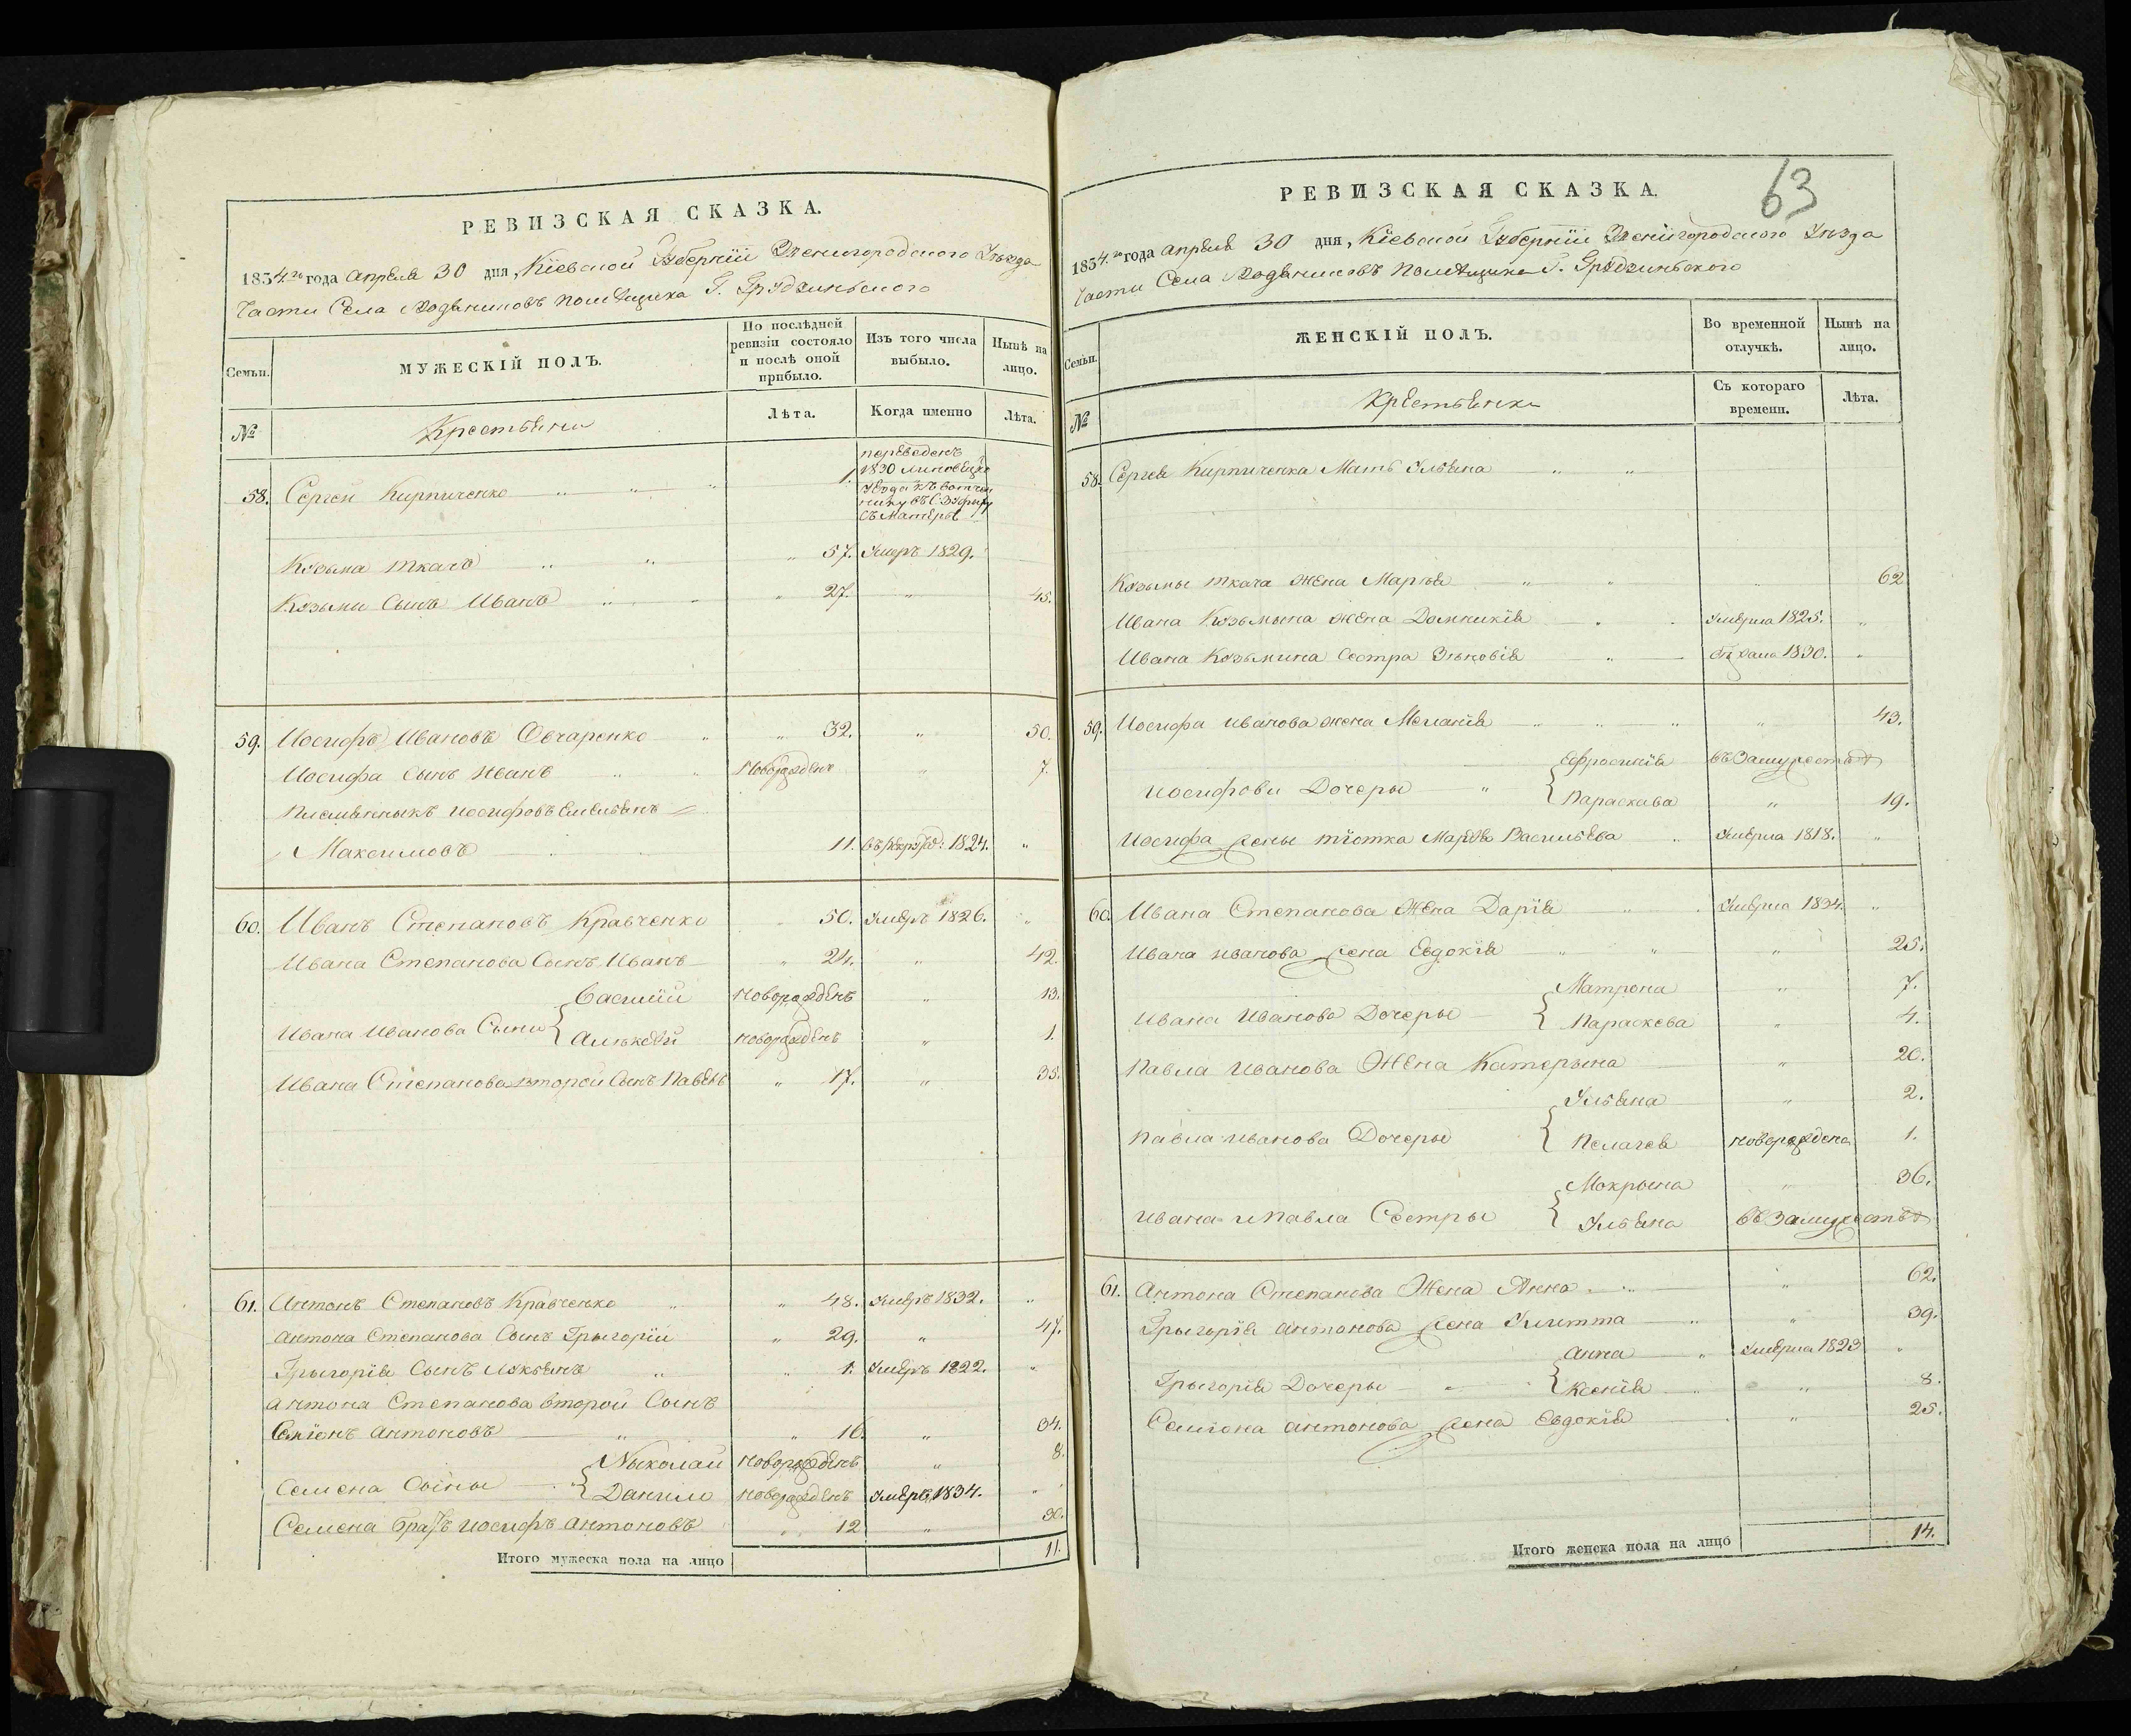 РЕВИЗСКАЯ СКАЗКА.
1834го года апреля 30 дня, Кіевской Губерніи Звенигородского Уѣзда
Части Села Водяниковъ помѣщика Г. Грудзиньского
Семьи.
МУЖЕСКІЙ ПОЛЪ.
По послѣдней ревизіи состояло и послѣ оной прибыло.
Изъ того числа выбыло.
Нынѣ на лицо.
№
Крестьяни
Лѣта.
Когда именно
Лѣта.
58. Сергей Кирпиченко " " " 1. переведенъ
1830 Липовецко
Уезда
съ матерью
Козьма ткачъ " " " 57. Умеръ 1829.
Козьми Сынъ Иванъ " " " 27. " 45.
59. Иосифъ Ивановъ Овчаренко " " 32. " 50.
Иосифа Сынъ Иванъ " " Новорожденъ " 7.
Иосифовъ Емельянъ
Максимовъ 11. въ рекрут: 1824. "
60. Иванъ Степановъ Кравченко 50. Умеръ 1826. "
Ивана Степанова Сынъ Иванъ " 24. " 42.
Василий новорожденъ " 13.
Ивана Иванова Сыни {
Алексѣй новорожденъ " 1.
Ивана Степанова второй Сынъ Павелъ " 17. " 35.
61. Антонъ Степановъ Кравченко " " 48. Умеръ 1832. "
Антона Степанова Сынъ Грыгорій " 29. " 47.
Грыгорія Сынъ Лукьянъ " " 1. Умеръ 1822. "
Антона Степанова второй Сынъ
Семіонъ Антоновъ " " 16. " 34.
Ныколай новорожденъ " 8.
Семена Сыны {
Данило новорожденъ Умеръ 1834. "
Семена братъ Иосифъ Антоновъ " 12 " 30.
Итого мужеска пола на лицо 11.
63
РЕВИЗСКАЯ СКАЗКА.
1834.го года апреля 30 дня, Кіевской Губерніи Звенигородского Уѣзда
Части Села Водяниковъ помѣщика Г. Грудзиньского
Семьи.
ЖЕНСКІЙ ПОЛЪ.
Во временной отлучкѣ.
Нынѣ на лицо.
№
Крестьянки
Съ котораго времени.
Лѣта.
58. Сергея Кирпиченка Мать Ульяна " "
Козьмы ткача жена Марія " " " 62
Ивана Козьмына жена Домникія " . Умерла 1825. "
Ивана Козьмина Сестра Зѣновія " 1830. "
59. Иосифа Иванова жена Меланія " " " " 43.
Ефросинія въ Замужествѣ
Иосифови Дочеры " {
Параскава " 19.
Иосифа жены тіотка Марія Васильева . Умерла 1818. "
60. Ивана Степанова Жена Дарія " . Умерла 1834. "
Ивана Иванова жена Евдокія " " " 25.
Матрона " 7.
Ивана Иванова Дочеры {
Параскева " 4.
Павла Иванова Жена Катерына " 20.
Ульяна " 2.
Павла Иванова Дочеры {
Пелагея новорождена 1.
Мокрына " 36.
Ивана и Павла Сестры {
Ульяна въ Замужествѣ
61. Антона Степанова Жена Анна " " 62.
Грыгорія Антонова жена Улитта " " 39.
Анна " Умерла 1823 "
Грыгорія Дочеры " {
Ксенія " 8.
Семіона Антонова жена Евдокія . " 25.
Итого женска пола на лицо 14.